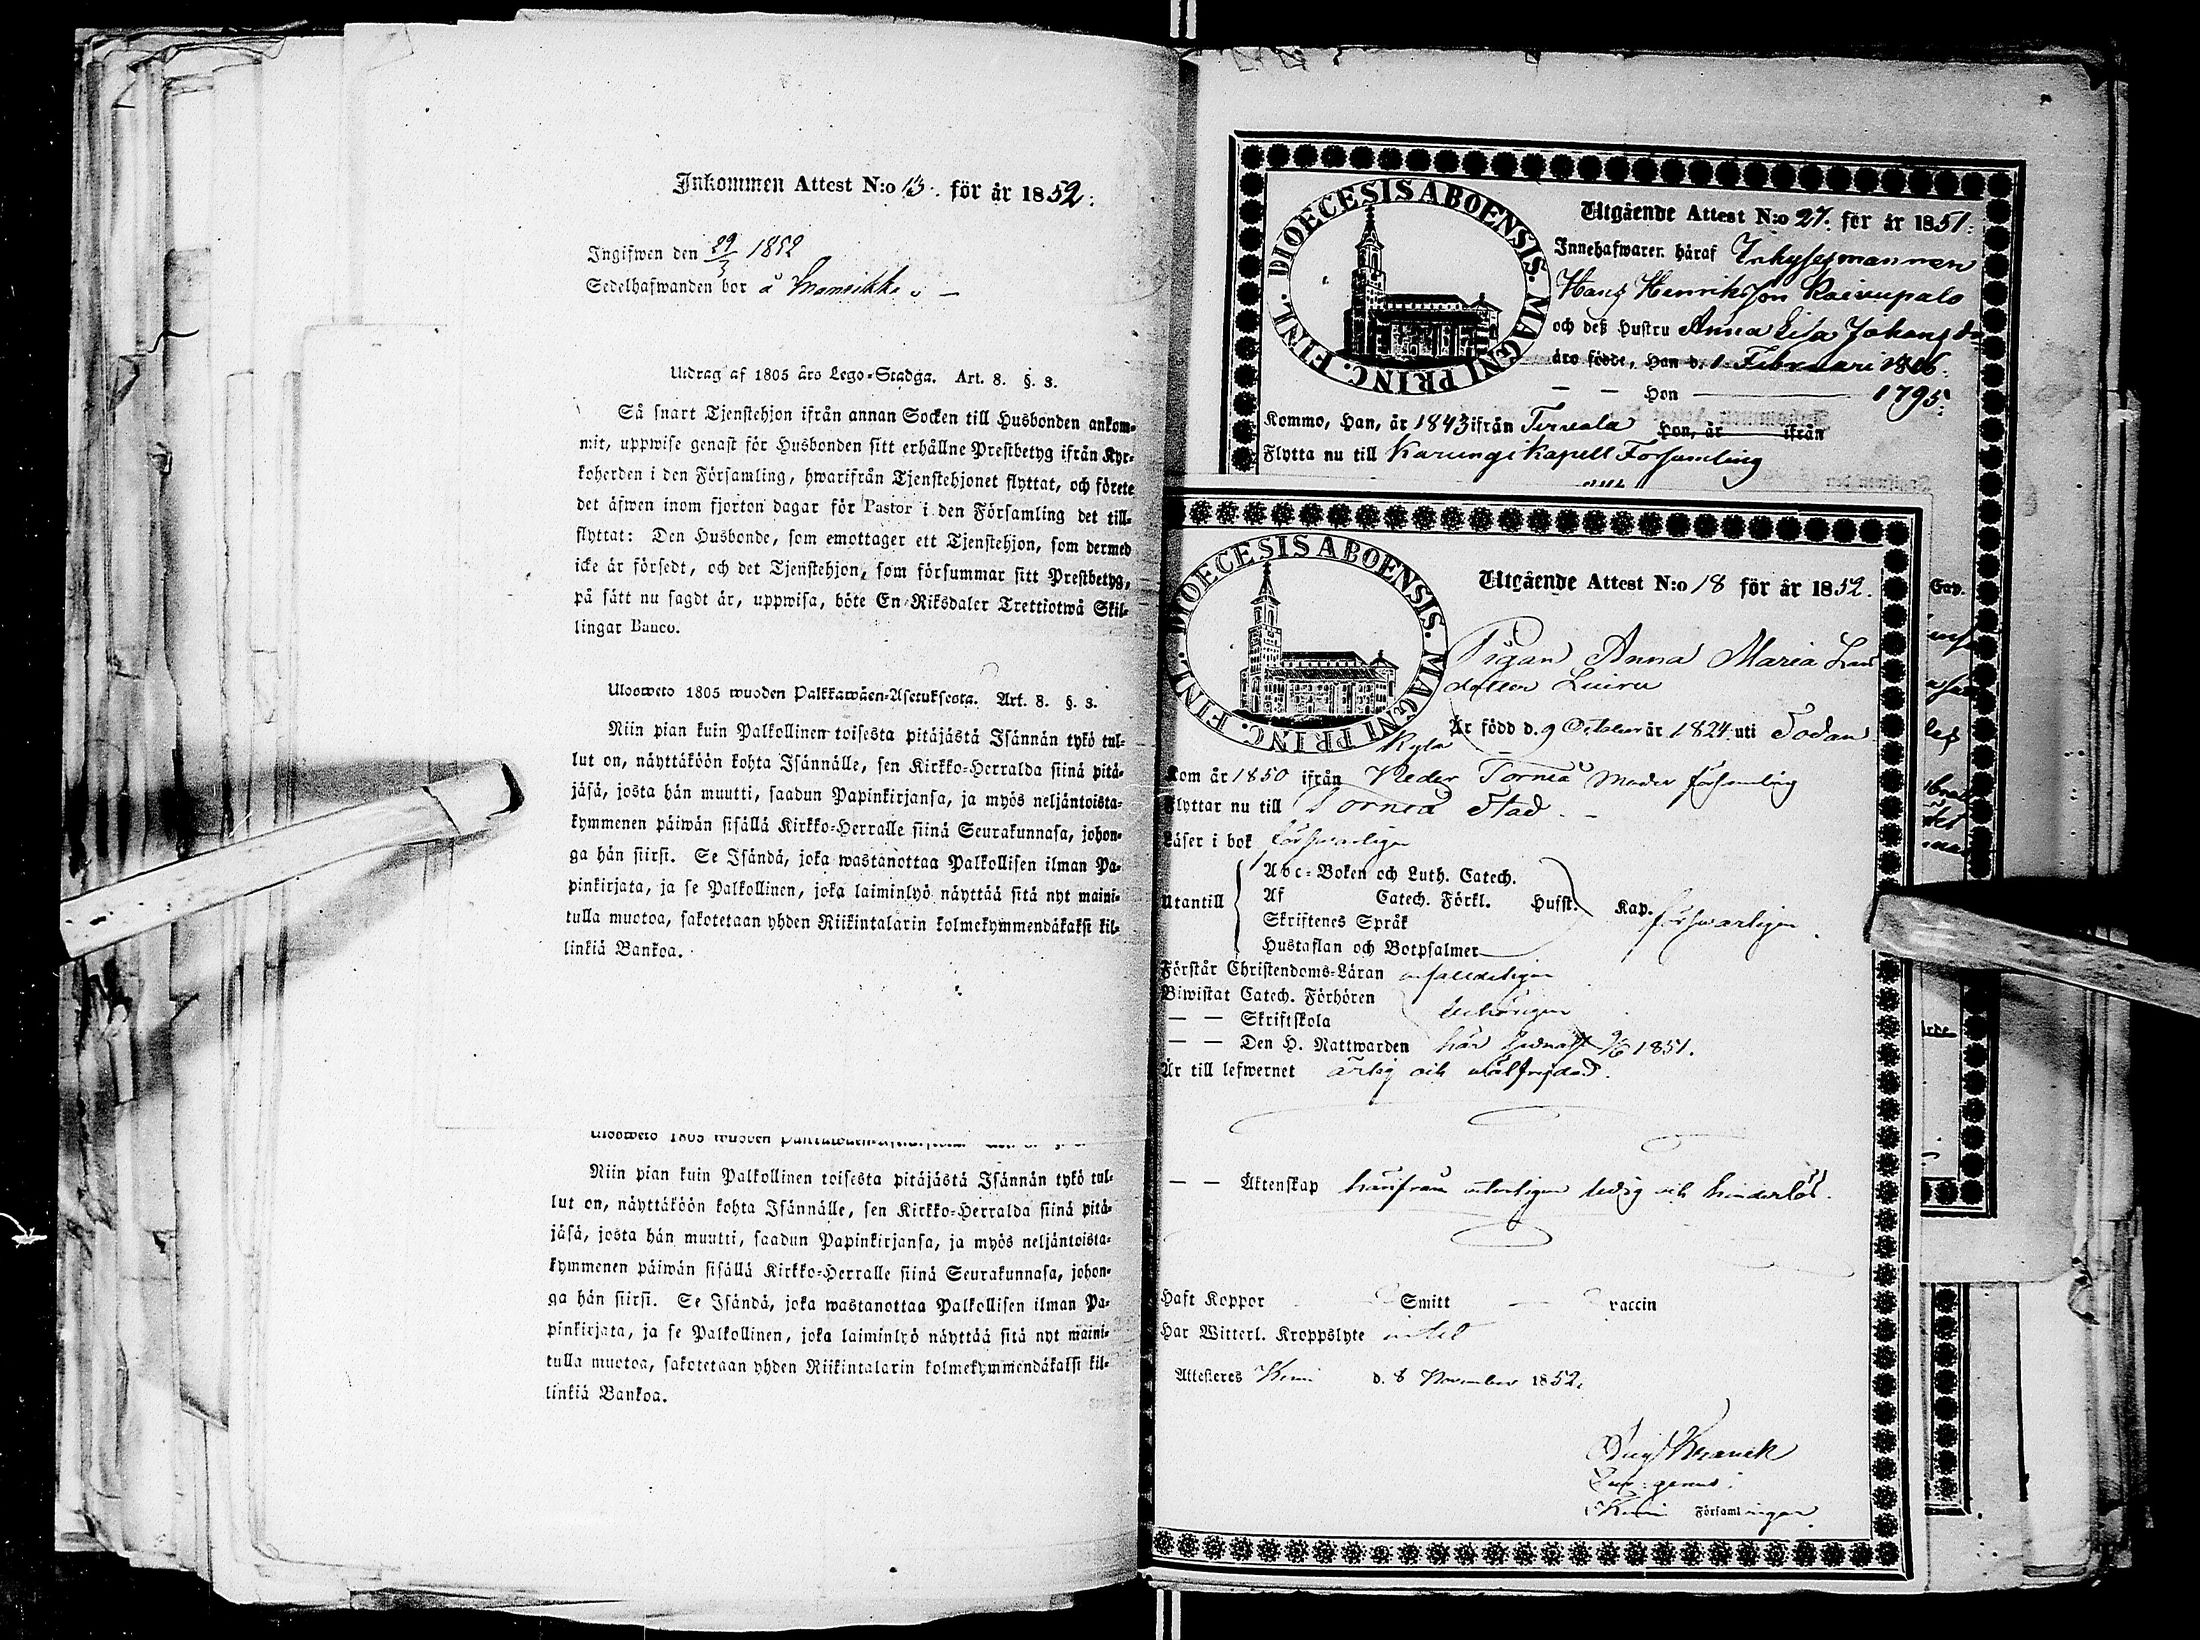 Inkommen Attest N:o 13. för år 1852.
Ingifwen den 29/3 1852
Sedelhafwanden bor å
Utdrag af 1805 års Lego-Stadga. Art. 8. §. 3.
Så snart Tjenstehjon ifrån annan Socken till Husbonden ankom-
mit, uppwise genast för Husbonden sitt erhållne Prestbetyg ifrån Kyr-
koherden i den Församling, hwarifrån Tjenstehjonet flyttat, och förete
det äfwen inom fjorton dagar för Pastor i den Församling det till-
flyttat: Den Husbonde, som emottager ett Tjenstehjon, som dermed
icke är försedt, och det Tjenstehjon, som försummar sitt Prestbetyg,
på sätt nu sagdt är, uppwisa, böte En Riksdaler Trettiotwå Skil-
lingar Banco.
Ulosweto 1805 wuoden Palkkawäen-Asetuksesta. Art. 8. §. 3.
Niin pian kuin Palkollinen toisesta pitäjästä Isännän tykö tul-
lut on, näyttäköön kohta Isännälle, sen Kirkko-Herralda siinä pitä-
jäsä, josta hän muutti, saadun Papinkirjansa, ja myös neljäntoista-
kymmenen päiwän sisällä Kirkko-Herralle siinä Seurakunnasa, johon-
ga hän siirsi. Se Isändä, joka wastanottaa Palkollisen ilman Pa-
pinkirjata, ja se Palkollinen, joka laiminlyö näyttää sitä nyt maini-
tulla muotoa, sakotetaan yhden Riikintalarin kolmekymmendäkaksi kil-
linkiä Bankoa.
Ulosweto 1805 wuoden
Niin pian kuin Palkollinen toisesta pitäjästä Isännän tykö tul-
lut on, näyttäköön kohta Isännälle, sen Kirkko-Herralda siinä pitä-
jäsä, josta hän muutti, saadun Papinkirjansa, ja myös neljäntoista-
kymmenen päiwän sisällä Kirkko-Herralle siinä Seurakunnasa, johon-
ga hän siirsi. Se Isändä, joka wastanottaa Palkollisen ilman Pa-
pinkirjata, ja se Palkollinen, joka laiminlyö näyttää sitä nyt maini-
tulla muotoa, sakotetaan yhden Riikintalarin kolmekymmendäkaksi kil-
linkiä Bankoa.
DIOECESIS ABOENSIS. MAGNI PRINC. FINL.
Utgående Attest N:o 27. för år 1851.
Innehafwaren häraf Inhysesmannen
Hans Henriksson Raiwupalo
och deß Hustru Anna Lisa Johansdr
äro födde, Han d. 1 Februari 1806.
— — Hon — 1795.
Kommo, Han, år 1843 ifrån Terwola Hon, år ifrån
Flytta nu till Karungi Kapell Församling
DIOECESIS ABOENSIS. MAGNI PRINC. FINL.
Utgående Attest N:o 18 för år 1852.
Pigan Anna Maria Lars
dotter Luiru
Är född d. 9 October år 1824 uti
Kyla
Kom år 1850 ifrån Neder Torneå Moder församling
Flyttar nu till Torneå Stad.
Läser i bok försvarligen
Utantill
Abc-Boken och Luth. Catech.
Af Catech. Förkl. Husst. Kap. försvarligen
Skriftenes Språk
Hustaflan och Botpsalmer
Förstår Christendoms-Läran enfaldeligen
Biwistat Catech. Förhören
— — Skriftskola behörigen
— — Den H. Nattwarden här sednast 9/6 1851.
Är till lefwernet ärlig och wälfrejdad.
— — Äktenskap härifrån witterligen ledig och hinderlös.
Haft Koppor Smitt — vaccin
Har Witterl. Kroppslyte intet
Attesteres Kemi d. 8 November 1852.
Kemi Församlingar